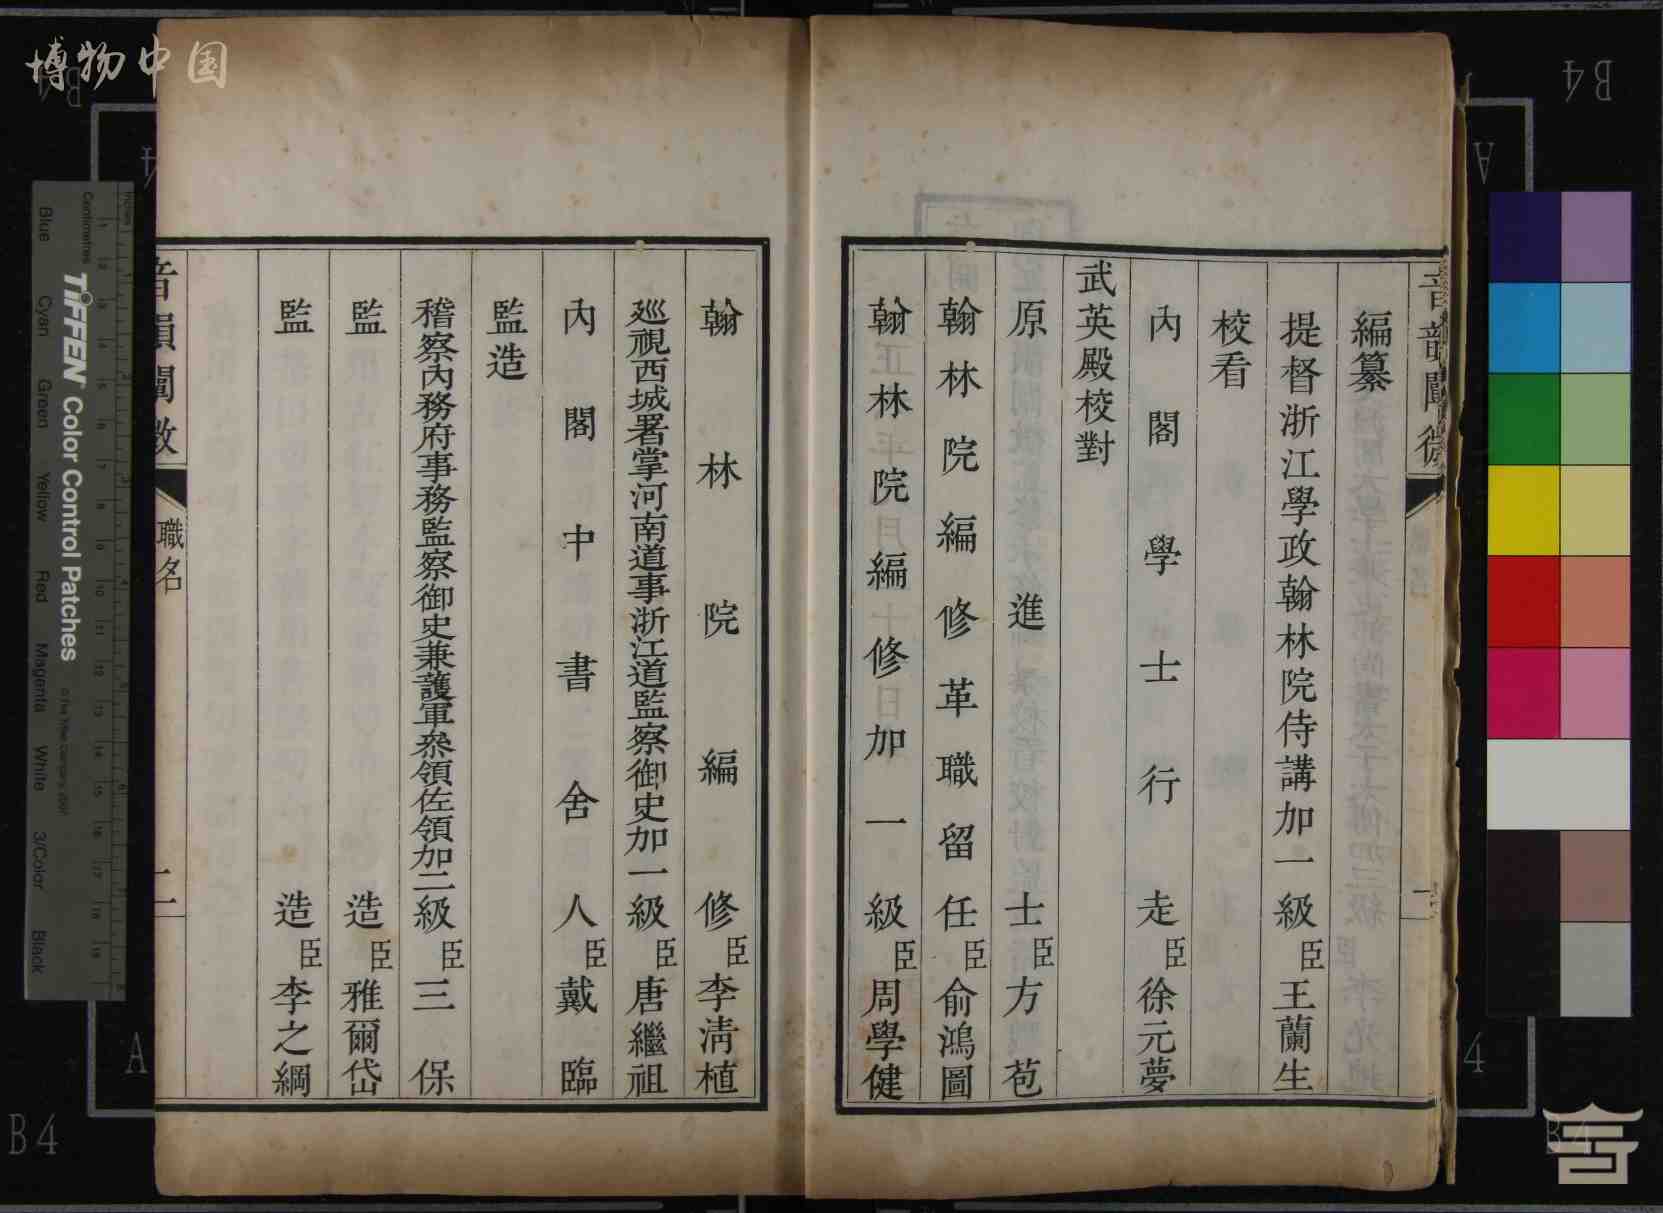 博物中国
音韻闡微
編纂
提督浙江學政翰林院侍講加一級臣王蘭生
校看
內閣學士行走臣徐元夢
武英殿校對
原進士臣方苞
翰林院編修革職留任臣俞鴻圖
翰林院編修加一級臣周學健
翰林院編修臣李淸植
巡視西城署掌河南道事浙江道監察御史加一級臣唐繼祖
內閣中書舍人臣戴臨
監造
稽察內務府事務監察御史兼護軍叅領佐領加二級臣三保
監造臣雅爾岱
監造臣李之綱
音韻闡微
職名
二
Inches
Centimetres
TIFFEN Color Control Patches
©The Tiffen Company, 2007
Blue
Cyan
Green
Yellow
Red
Magenta
White
3/Color
Black
B4
B4
A
A
A4
B4
B4